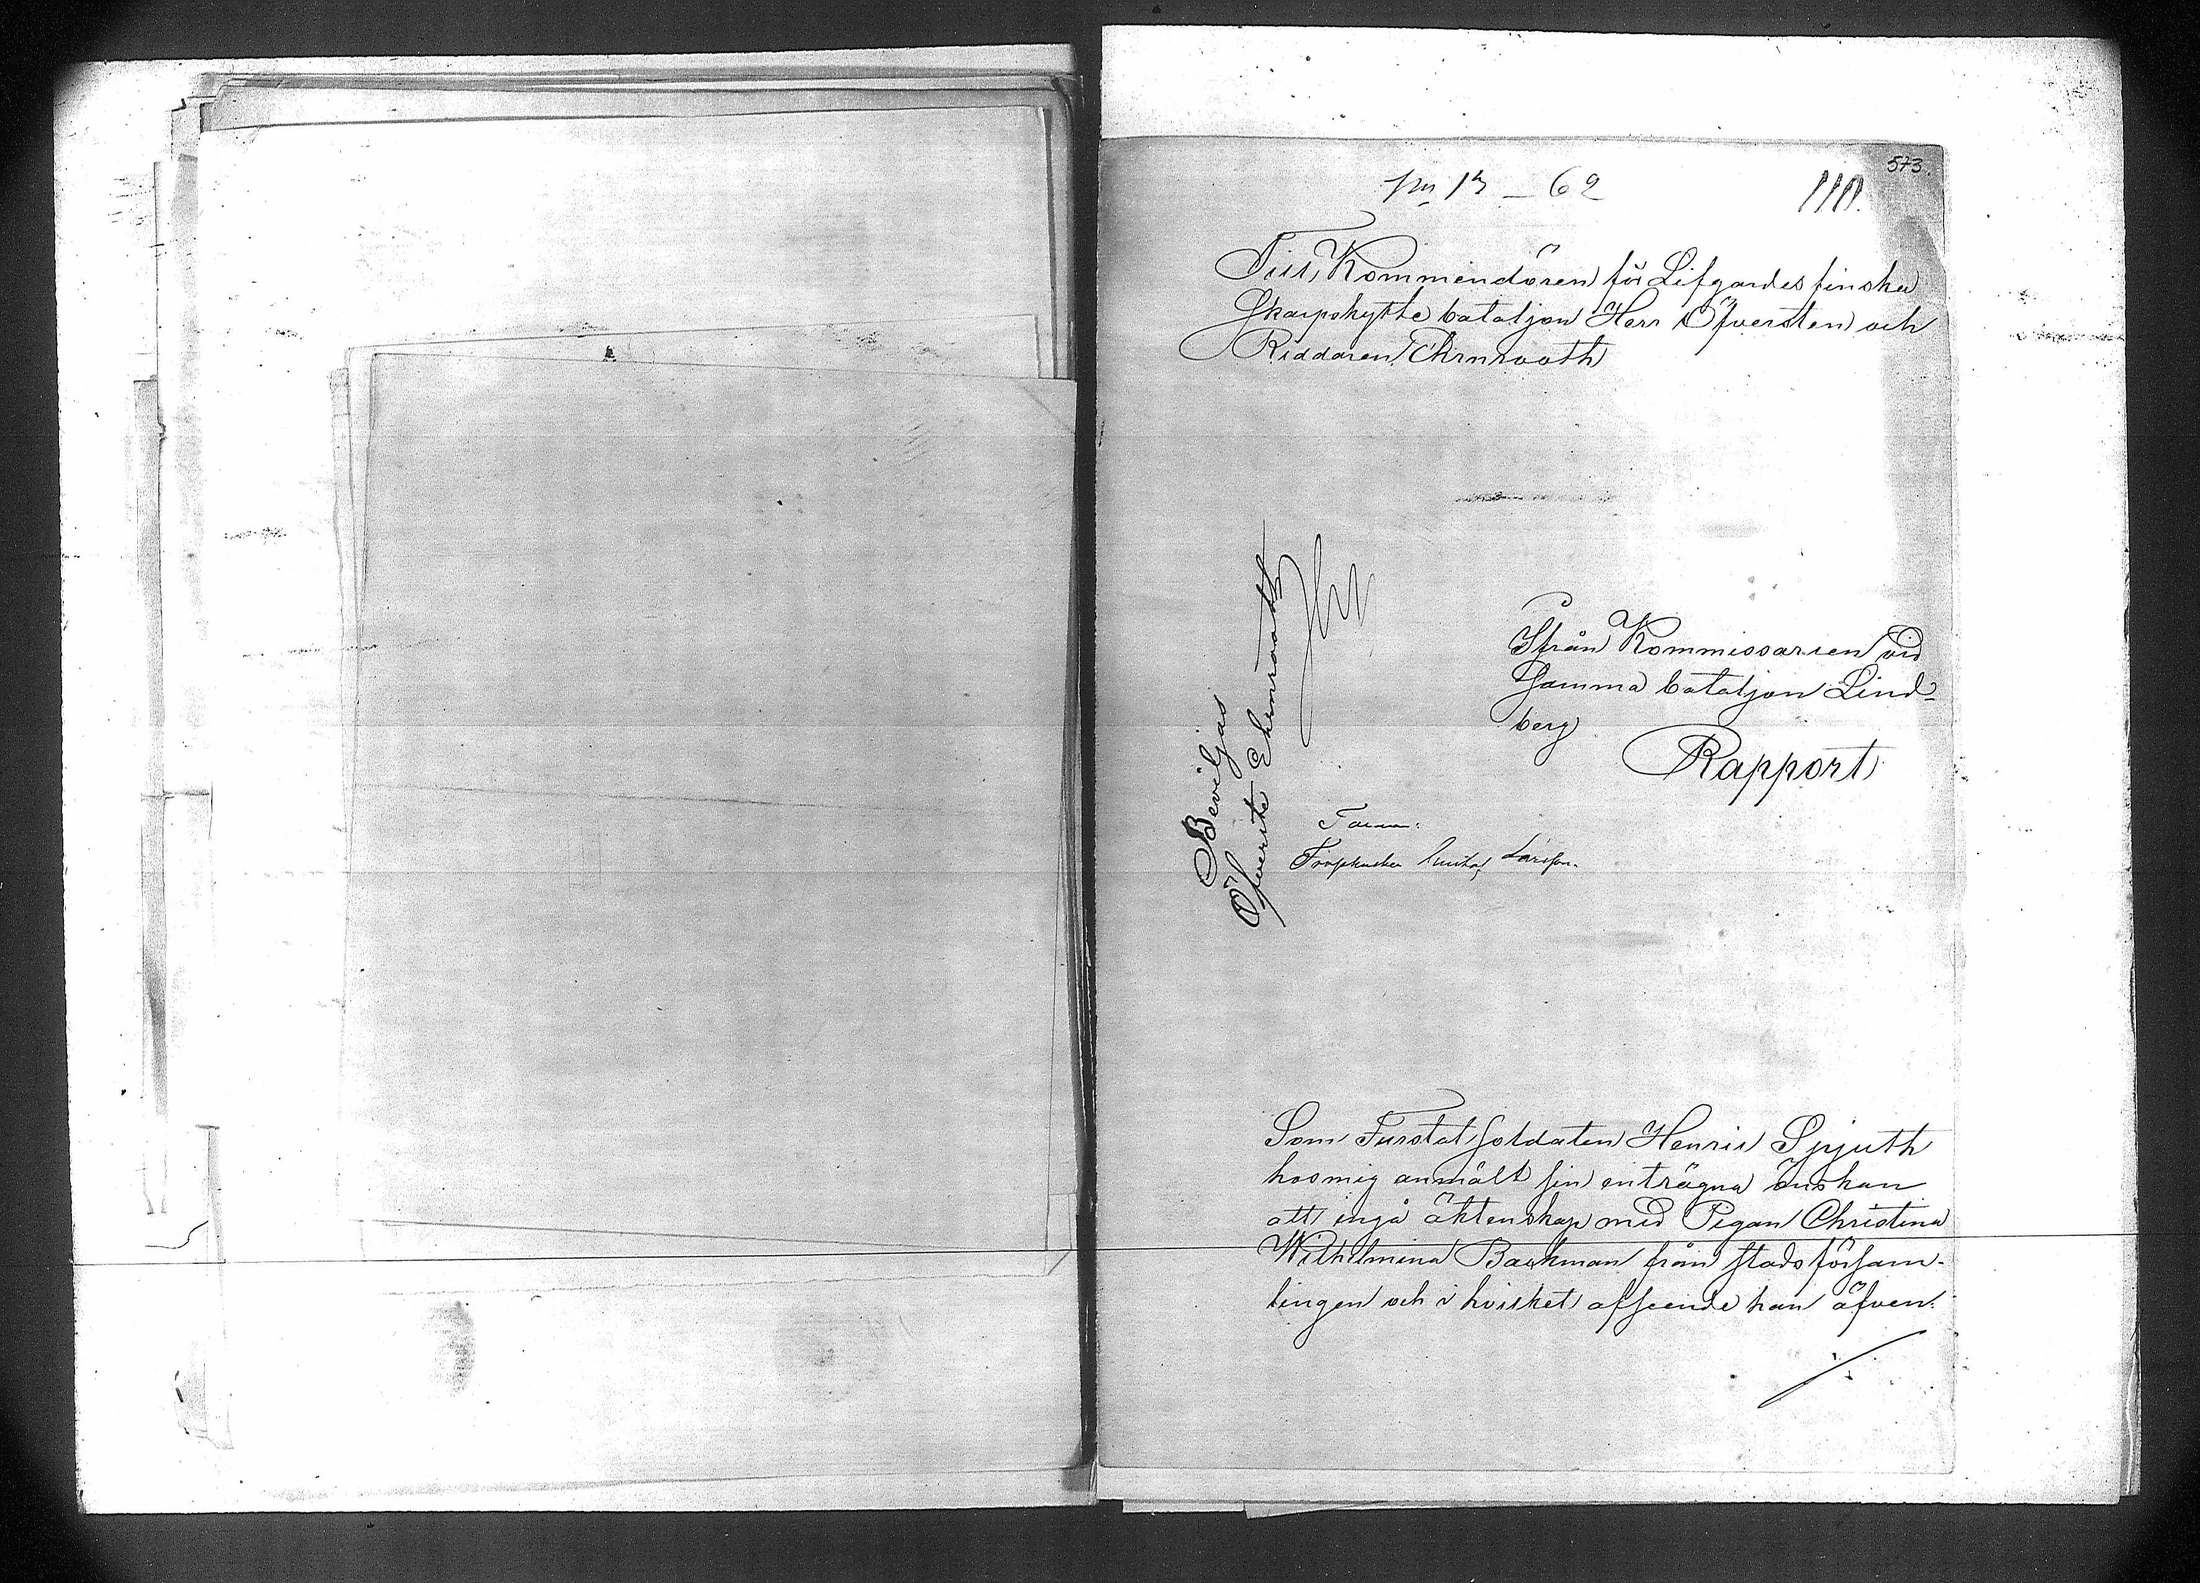 573.
13 – 62
Till Kommendören för Lifgardes finska
Skarpskytte bataljon Herr Öfversten och
Riddaren Ehrnrooth
Ifrån Kommissarien vid
samma bataljon Lind-
berg
Rapport
Beviljas
Öfverste Ehrnrooth
Gustaf Larsson.
Som Furstat soldaten Henric Spjuth
hos mig anmält sin enträgna önskan
att ingå äktenskap med Pigan Christina
Wilhelmina Backman från stads församlingen
och i hvilket afseende han äfven: